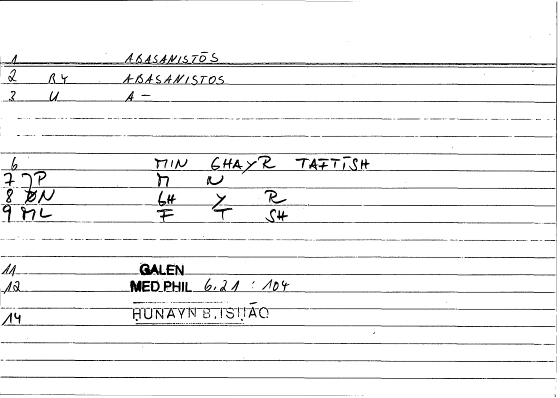 1 ABASANISTŌS
2 RY ABASANISTOS
3 U A —
6 MIN GHAYR TAFTĪSH
7 JP M N
8 ØN GH Y R
9 ML F T SH
11 GALEN
12 MED.PHIL 6.21 : 104
14 ḤUNAYN B. ISḤĀQ